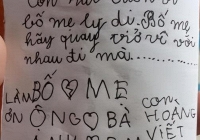 bố mẹ ly dị. Bố mẹ
hãy quay trở về với
nhau đi mà.....
LÀM BỐ MẸ
ƠN ÔNG BÀ
CON HOÀNG
VIẾT